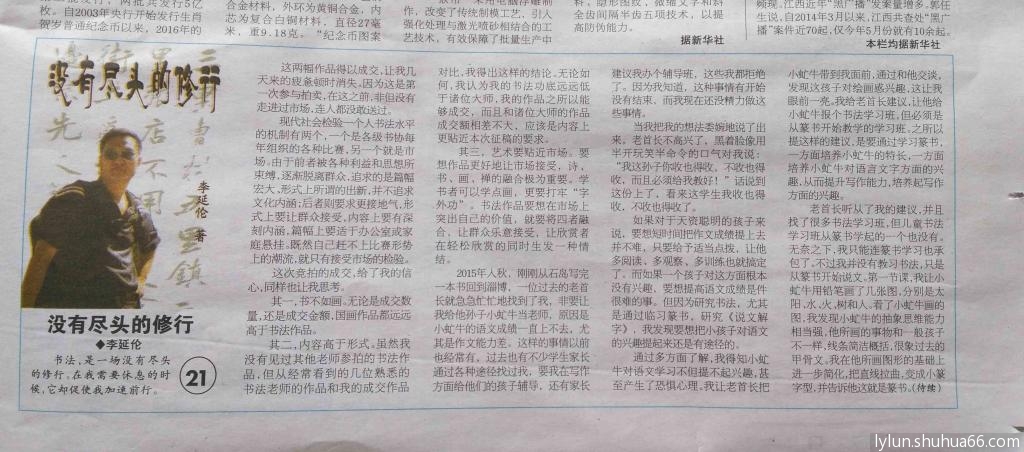 枚。自2003年央行开始发行生肖
岁普通纪念币以来，2016年的
合金材料，外环为黄铜合金，内
芯为复合白铜材料，直径27毫
米，重9.18克。“纪念币图案
作，改变了传统制模工艺，引人
强化处理与激光喷砂相结合的工
艺技术，有效保障了批量生产中
料，隐形图纹，微缩文字和斜
全齿间隔半齿五项技术，以提
高防伪能力。
据新华社
频现，江西近年“黑广播”发案量增多，郭任
生说，自2014年3月以来，江西共查处“黑广
播”案件近70起，仅今年5月份就有10余起。
本栏均据新华社
没有尽头的修行
李延伦 著
没有尽头的修行
◆李延伦
书法，是一场没有尽头
的修行，在我需要休息的时
候，它却促使我加速前行。
21
这两幅作品得以成交，让我几
天来的疲惫顿时消失，因为这是第
一次参与拍卖，在这之前，非但没有
走进过市场，连人都没敢送过。
现代社会检验一个人书法水平
的机制有两个，一个是各级书协每
年组织的各种比赛，另一个就是市
场。由于前者被各种利益和思想所
束缚，逐渐脱离群众，追求的是篇幅
宏大，形式上所谓的出新，并不追求
文化内涵；后者则要求更接地气，形
式上要让群众接受，内容上要有深
刻内涵，篇幅上要适于办公室或家
庭悬挂。既然自己赶不上比赛形势
上的潮流，就只有接受市场的检验。
这次竞拍的成交，给了我的信
心，同样也让我思考。
其一，书不如画。无论是成交数
量，还是成交金额，国画作品都远远
高于书法作品。
其二，内容高于形式，虽然我
没有见过其他老师参拍的书法作
品，但从经常看到的几位熟悉的
书法老师的作品和我的成交作品
对比，我得出这样的结论。无论如
何，我认为我的书法功底远远低
于诸位大师，我的作品之所以能
够成交，而且和诸位大师的作品
成交额相差不大，应该是内容上
更贴近本次征稿的要求。
其三，艺术要贴近市场。要
想作品更好地让市场接受，诗，
书，画，禅的融合极为重要。学
书者可以学点画，更要打牢“字
外功”。书法作品要想在市场上
突出自己的价值，就要将四者融
合，让群众乐意接受，让欣赏者
在轻松欣赏的同时生发一种情
结。
2015年入秋，刚刚从石岛写完
一本书回到淄博，一位过去的老首
长就急急忙忙地找到了我，非要让
我给他孙子小虹牛当老师，原因是
小虹牛的语文成绩一直上不去，尤
其是作文能力差。这样的事情以前
也经常有，过去也有不少学生家长
通过各种途径找过我，要我在写作
方面给他们的孩子辅导，还有家长
建议我办个辅导班，这些我都拒绝
了。因为我知道，这种事情有开始
没有结束，而我现在还没精力做这
些事情。
当我把我的想法委婉地说了出
来，老首长不高兴了，黑着脸像用
半开玩笑半命令的口气对我说：
“我这孙子你收也得收，不收也得
收，而且必须给我教好！”话说到
这份上了，看来这学生我收也得
收，不收也得收了。
如果对于天资聪明的孩子来
说，要想短时间把作文成绩提上去
并不难，只要给予适当点拨，让他
多阅读，多观察，多训练也就搞定
了。而如果一个孩子对这方面根本
没有兴趣，要想提高语文成绩是件
很难的事。但因为研究书法，尤其
是通过临习篆书，研究《说文解
字》，我发现要想把小孩子对语文
的兴趣提起来还是有途径的。
通过多方面了解，我得知小虹
牛对语文学习不但提不起兴趣，甚
至产生了恐惧心理，我让老首长把
小虹牛带到我面前，通过和他交谈，
发现这孩子对绘画感兴趣，这让我
眼前一亮。我给老首长建议，让他给
小虹牛报个书法学习班，但必须是
从篆书开始教学的学习班，之所以
提这样的建议，是要通过学习篆书，
一方面培养小虹牛的特长，一方面
培养小虹牛对语言文字方面的兴
趣，从而提升写作能力，培养起写作
方面的兴趣。
老首长听从了我的建议，并且
找了很多书法学习班，但儿童书法
学习班从篆书学起的一个也没有。
无奈之下，我只能连篆书学习也承
包了。不过我并没有教习书法，只是
从篆书开始说文，第一节课，我让小
虹牛用铅笔画了几张图，分别是太
阳，水，火，树和人。看了小虹牛画的
图，我发现小虹牛的抽象思维能力
相当强，他所画的事物和一般孩子
不一样，线条简洁概括，很象过去的
甲骨文，我在他所画图形的基础上
进一步简化，把直线拉曲，变成小篆
字型，并告诉他这就是篆书。（待续）
lylun.shuhua66.com